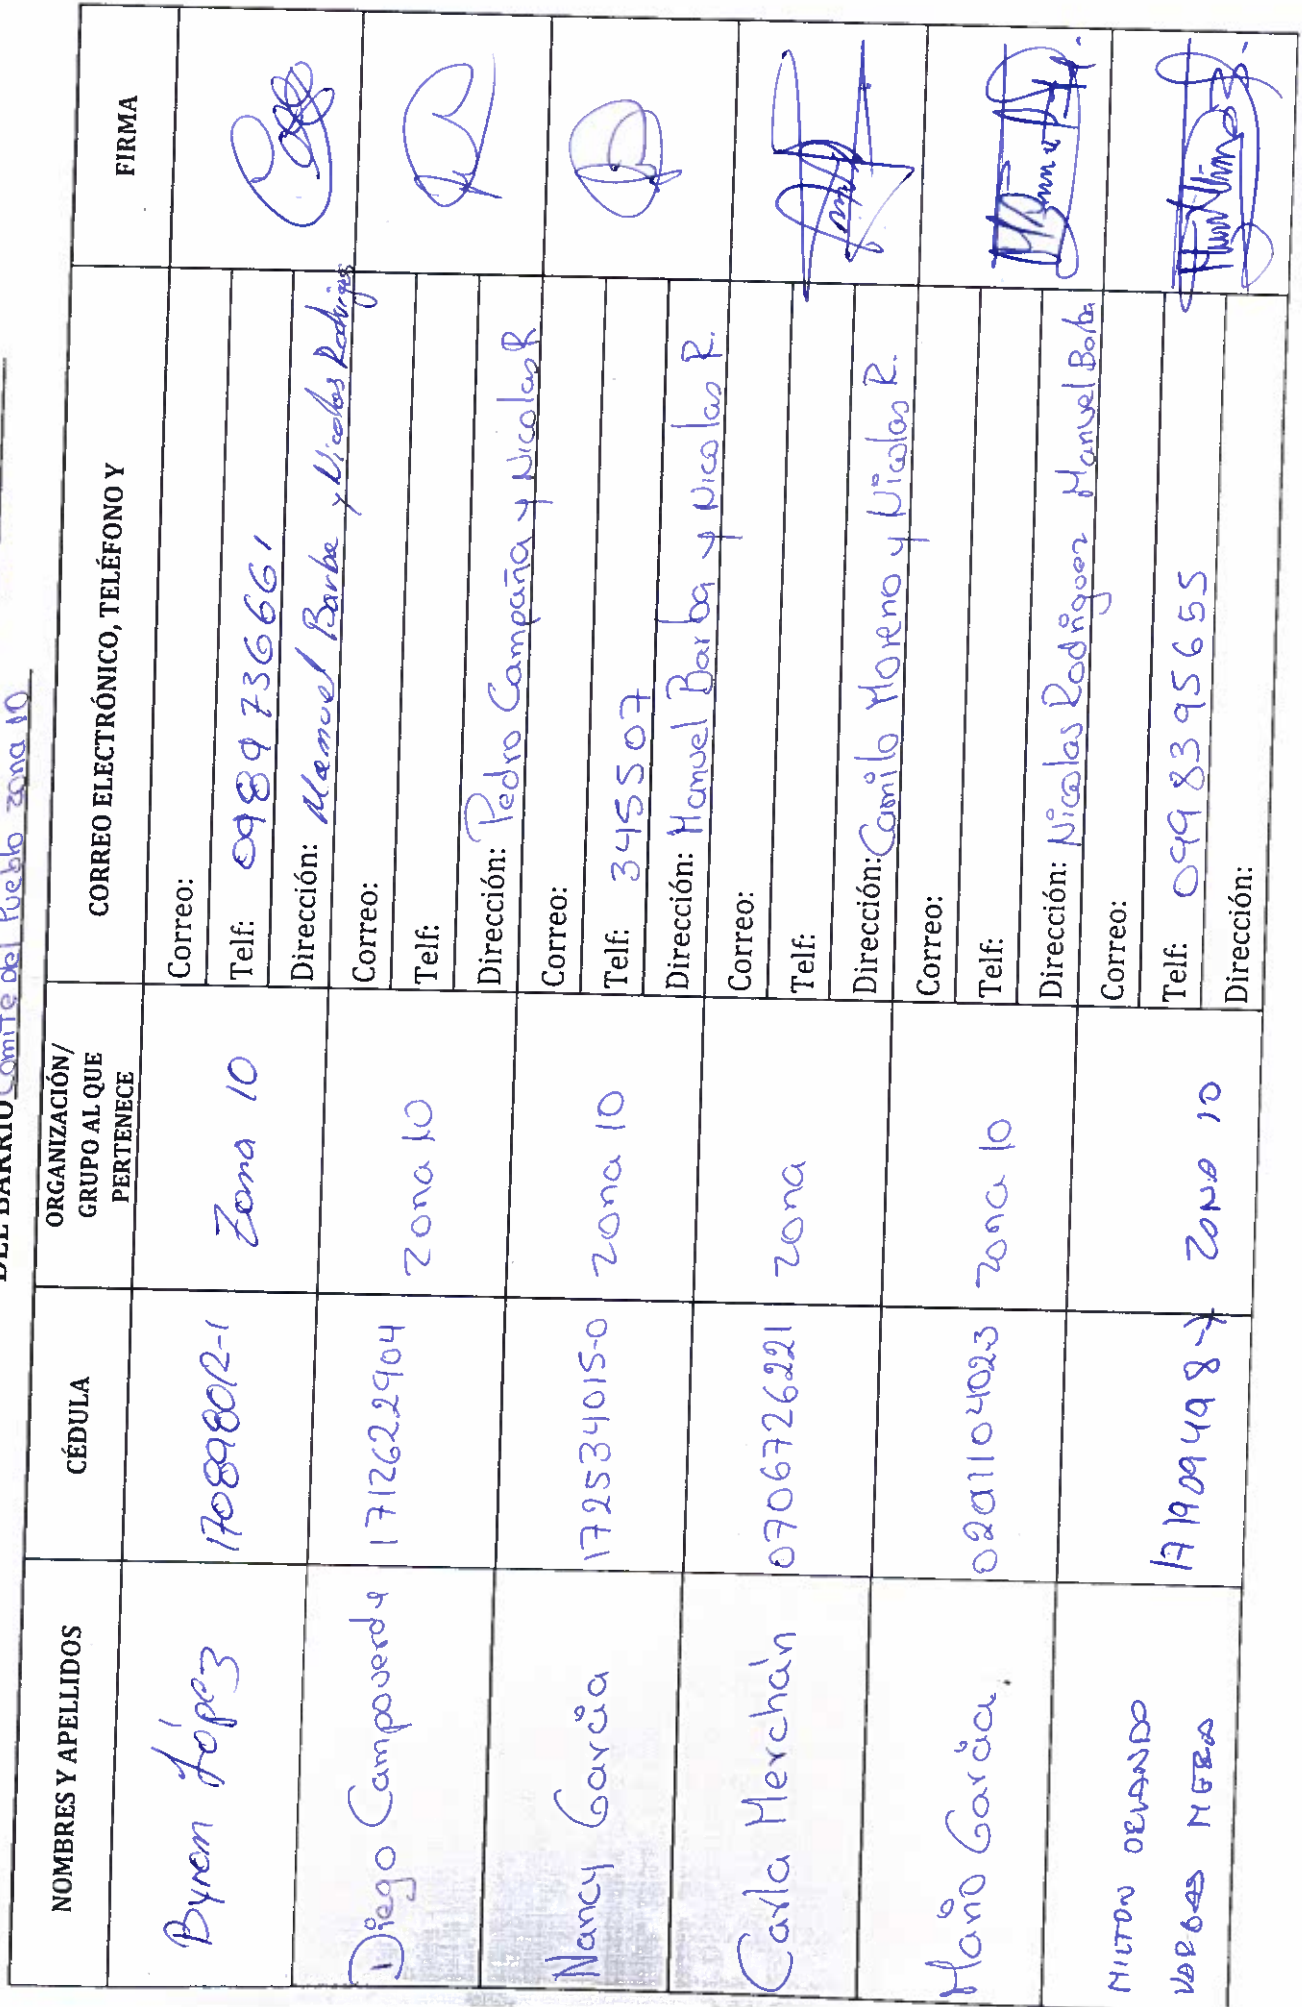 DEL BARRIO Comite del Pueblo zona 10
NOMBRES Y APELLIDOS
CÉDULA
ORGANIZACIÓN/
GRUPO AL QUE
PERTENECE
CORREO ELECTRÓNICO, TELÉFONO Y
FIRMA
Byron López
170898012-1
Zona 10
Correo:
Telf: 0989736661
Dirección: Manuel Barba y Nicolas Rodriguez
Diego Campoverde
1712622904
Zona 10
Correo:
Telf:
Dirección: Pedro Campaña y Nicolas R
Nancy Garcia
172534015-0
Zona 10
Correo:
Telf: 3455507
Dirección: Manuel Barba y Nicolas R.
Carla Merchán
0706726221
Zona
Correo:
Telf:
Dirección: Camilo Moreno y Nicolas R.
Mario Garcia.
0201104023
Zona 10
Correo:
Telf:
Dirección: Nicolas Rodriguez Manuel Barba
MILTON ORLANDO
VARGAS MERA
ZONA 10
Correo:
Telf: 0998395655
Dirección: